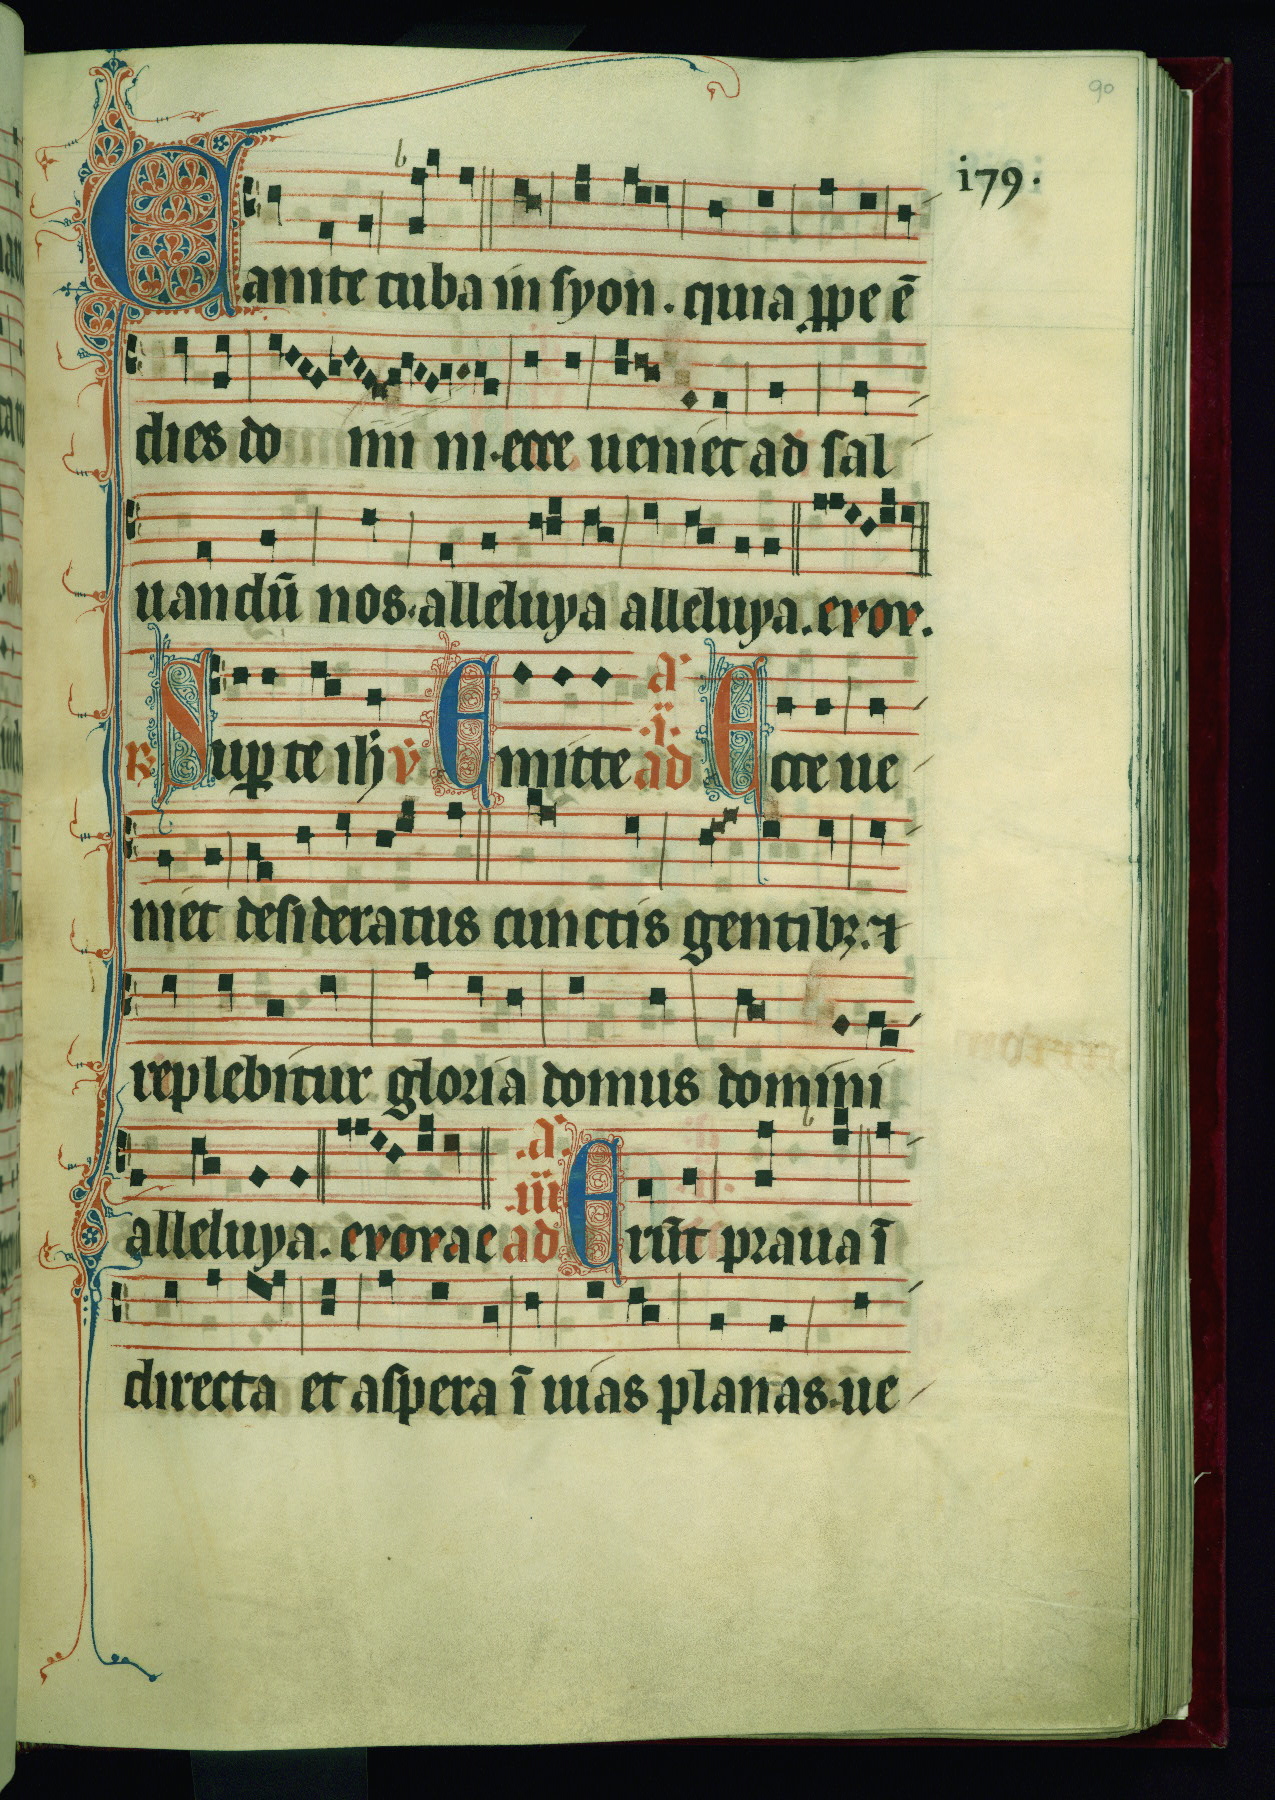 90
i79.
Canite tuba in syon. quia ꝓpe ē
dies do mi ni. ecce ueniet ad sal
uandū nos. alleluya alleluya. evovae.
℟ Suꝑ te ih̄ v̄ Emitte ad Ecce ue
niet desideratus cunctis gentibꝫ. ⁊
replebitur gloria domus domini
alleluya. evovae ad Erūt praua ī
directa et aspera ī uias planas. ue